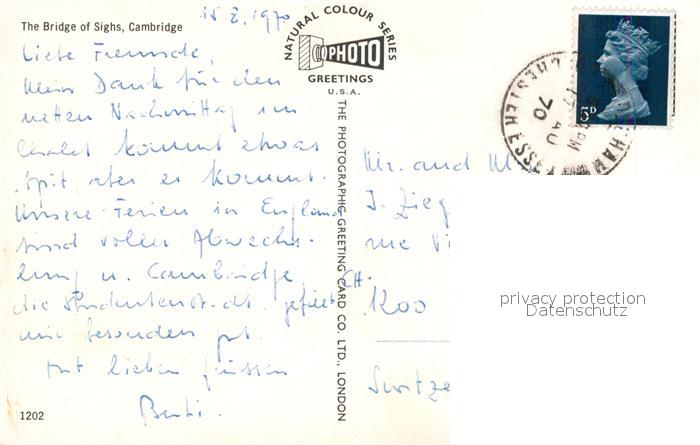 The Bridge of Sighs, Cambridge
15 8. 1970
Liebe Freunde,
Mein Dank für den
netten Nachmittag im
Chalet kommt etwas
spät, aber er kommt.
Unsere Ferien in England
sind voller Abwechs-
lung u. Cambridge
die Studentenstadt, gefällt
mir besonders gut
mit lieben Grüssen
1202
NATURAL COLOUR SERIES
PHOTO
GREETINGS
U.S.A.
THE PHOTOGRAPHIC GREETING CARD CO. LTD., LONDON
5D
PM
17 AU
70
Mr. and M
J. Zieg
rue Vi
CH.
Switze
privacy protection
Datenschutz